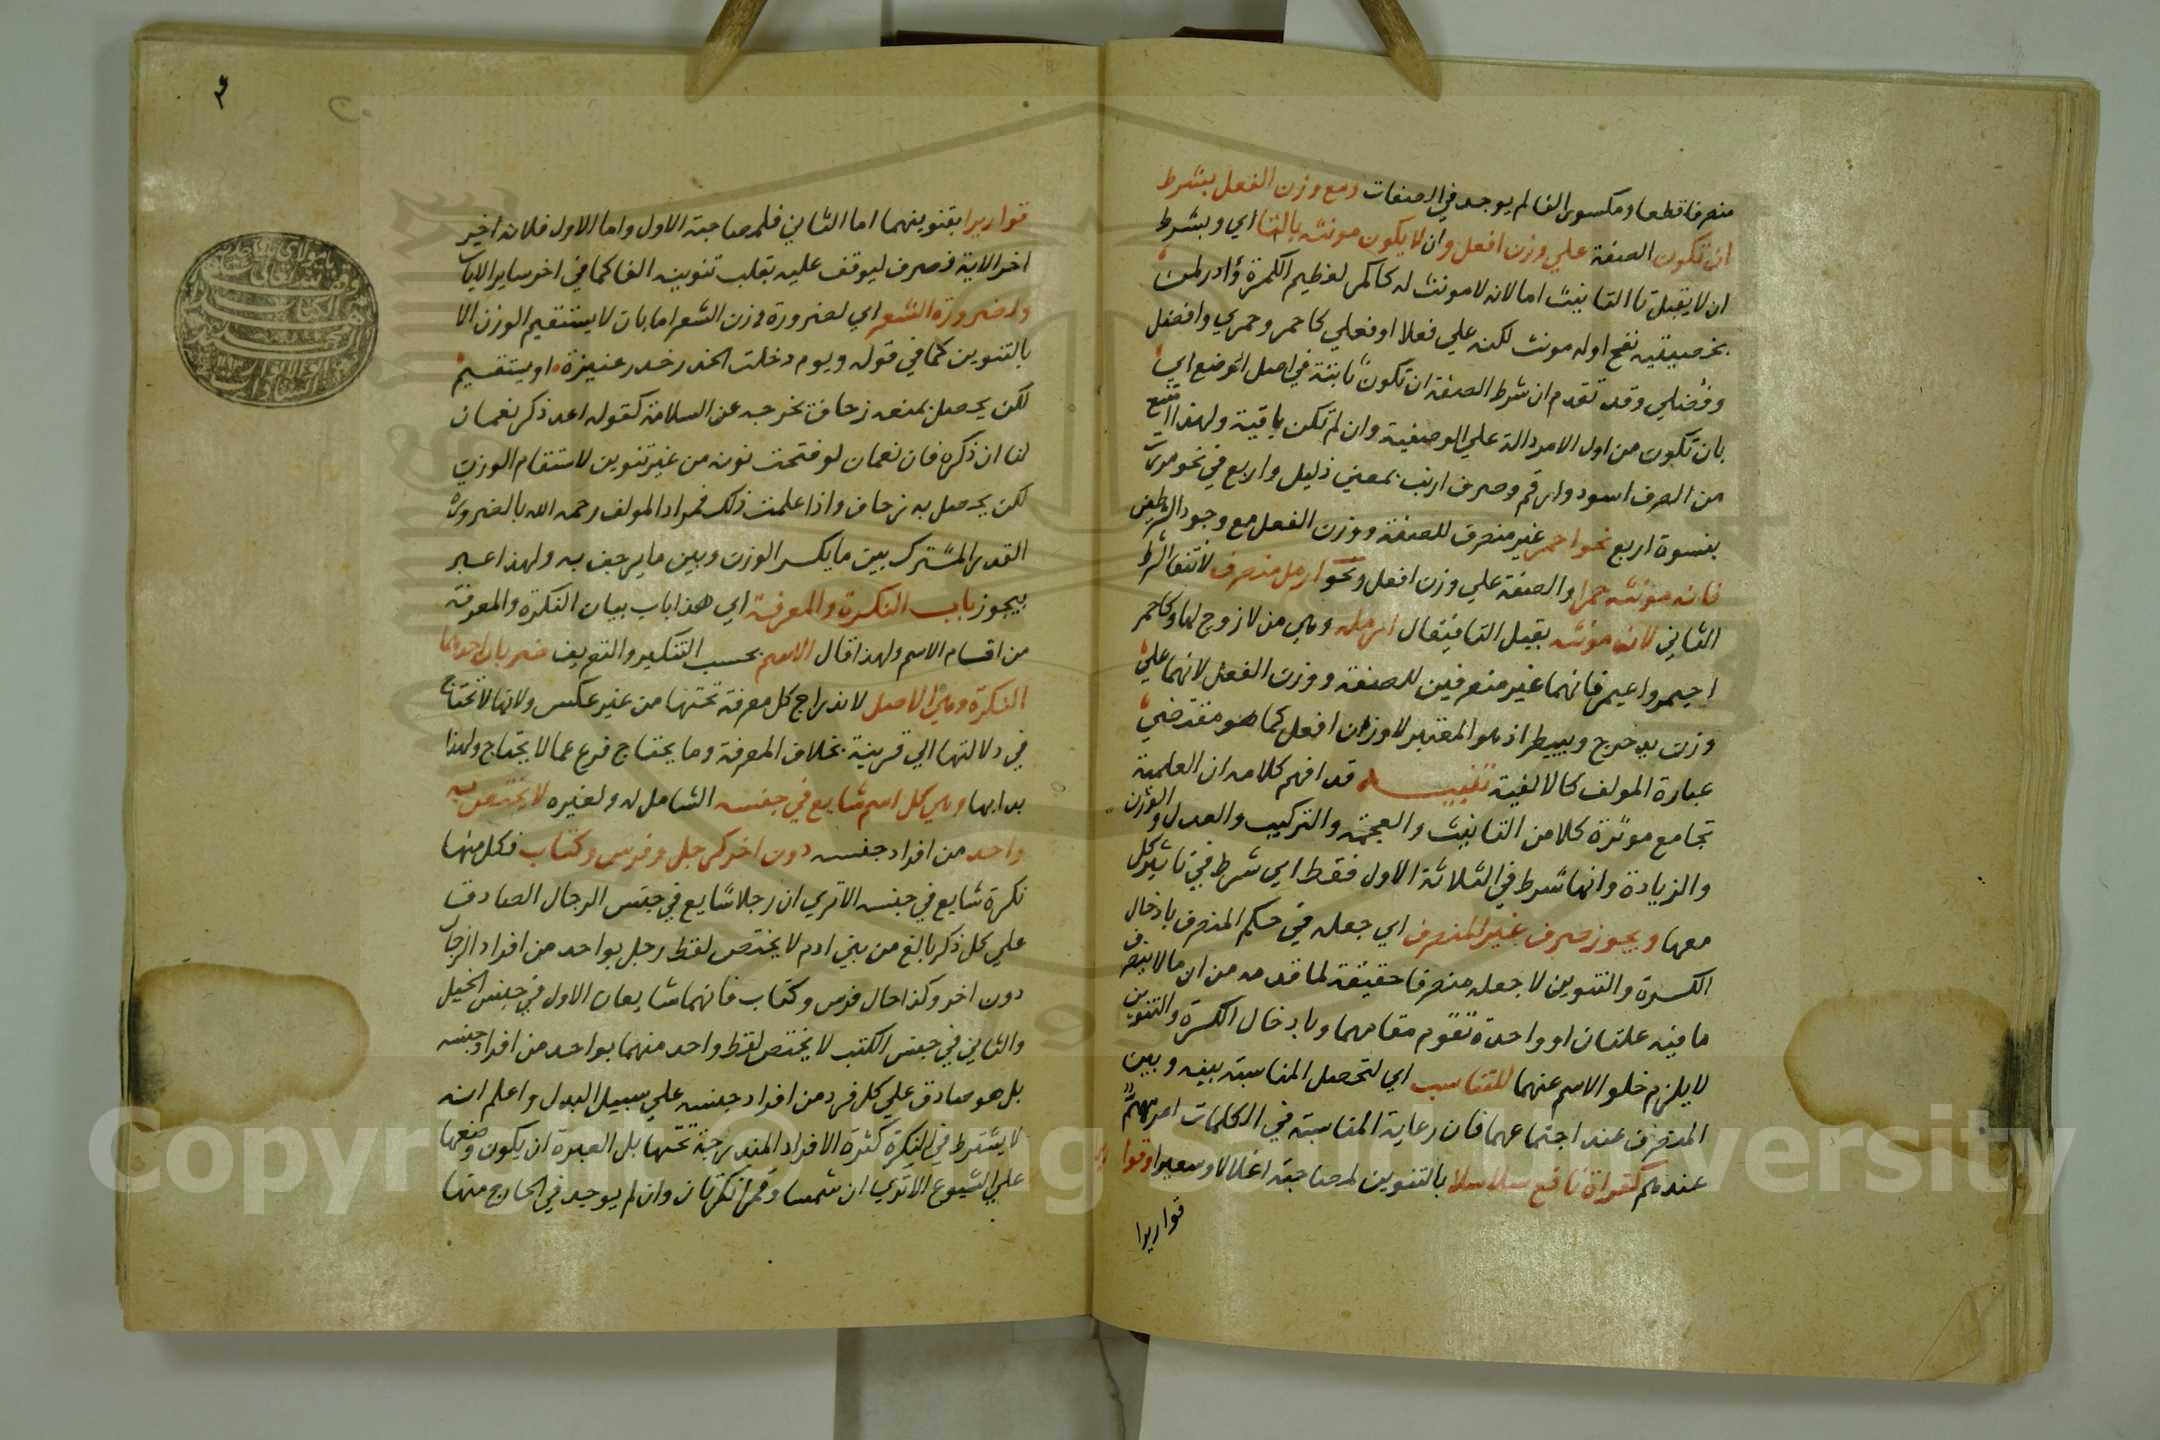 منصرفا قطعا ومكسور الفا لم يوجد في الصفات ومع وزن الفعل بشرط
ان تكون الصفة علي وزن افعل وان لا يكون مونثه بالتا اي وبشرط
ان لا يقبل تا التانيث اما لانه لا مونث له كاكمر لعظيم الكمرة وآدر لمن
بخصيتيه نفخ اوله مونث لكنه علي فعلا او فعلي كاحمر وحمري وافضل
وفضلي وقد تقدم ان شرط الصفة ان تكون ثابتة في اصل الوضع اي
بان تكون من اول الامر دالة علي الوصفية وان لم تكن باقية ولهذا امتنع
من الصرف اسود وارقم وصرف ارنب بمعني ذليل واربع في نحو مررت
بنسوة اربع نحو احمر غير منصرف للصفة ووزن الفعل مع وجود الشرطين
فانه مونثه حمرا والصفة علي وزن افعل ونحو ارمل منصرف لانتفا الشرط
الثاني لان مونثه يقبل التا فيقال ارملة وهي من لا زوج لها وكاحمر
احيمر واعيمر فانهما غير منصرفين للصفة ووزن الفعل لانهما علي
وزن يدحرج ويبيطر اذ هو المعتبر لا وزان افعل كما هو مقتضي
عبارة المولف كالالفية تنبيه قد افهم كلامه ان العلمية
تجامع موثرة كلا من التانيث والعجمة والتركيب والعدل والوزن
والزيادة وانها شرط في الثلاثة الاول فقط اي شرط في تاثير كل
معها ويجوز صرف غير المنصرف اي جعله في حكم المنصرف بادخال
الكسرة والتنوين لا جعله منصرفا حقيقة لما قدمه من ان مالا ينصرف
ما فيه علتان او واحدة تقوم مقامهما وبادخال الكسرة والتنوين
لا يلزم خلو الاسم عنهما للتناسب اي لتحصل المناسبة بينه وبين
المنصرف عند اجتماعهما فان رعاية المناسبة في الكلمات امر مهم
عندهم كقراة نافع سلاسلا بالتنوين لمصاحبة اغلالا وسعيرا وقوا
قواريرا
٣
قواريرا بتنوينهما اما الثاني فلمصاحبة الاول واما الاول فلانه اخير
اخر الاية فصرف ليوقف عليه بقلب تنوينه الفا كما في اخر ساير الايات
ولضرورة الشعر اي لضرورة وزن الشعر اما بان لا يستقيم الوزن الا
بالتنوين كما في قوله ويوم دخلت الخدر خدر عنيزة او يستقيم
لكن يحصل بمنعه زحاف يخرجه عن السلامة كقوله اعد ذكر نعمان
لنا ان ذكره فان نعمان لو فتحت نونه من غير تنوين لاستقام الوزن
لكن يحصل به زحاف واذا علمت ذلك فمراد المولف رحمه الله بالضرورة
القدر المشترك بين ما يكسر الوزن وبين ما يزحف به ولهذا عبر
بيجوز باب النكرة والمعرفة اي هذا باب بيان النكرة والمعرفة
من اقسام الاسم ولهذا قال الاسم بحسب التنكير والتعريف ضربان احدهما
النكرة وهي الاصل لاندراج كل معرفة تحتها من غير عكس ولانها لا تحتاج
في دلالتها الي قرينة بخلاف المعرفة وما يحتاج فرع عما لا يحتاج ولهذا
بدا بها وهي كل اسم شايع في جنسه الشامل له ولغيره لا يختص به
واحد من افراد جنسه دون اخر كرجل وفرس وكتاب فكل منها
نكرة شايع في جنسه الا تري ان رجلا شايع في جنس الرجال الصادق
علي كل ذكر بالغ من بني ادم لا يختص لفظ رجل بواحد من افراد الرجال
دون اخر وكذا حال فرس وكتاب فانهما شايعان الاول في جنس الخيل
والثاني في جنس الكتب لا يختص لفظ واحد منهما بواحد من افراد جنسه
بل هو صادق علي كل فرد من افراد جنسه علي سبيل البدل واعلم انه
لا يشترط في النكرة كثرة الافراد المندرجة تحتها بل العبرة ان يكون وضعها
علي الشيوع الا تري ان شمسا وقمرا نكرتان وان لم يوجد في الخارج منها
Copyright © King Saud University